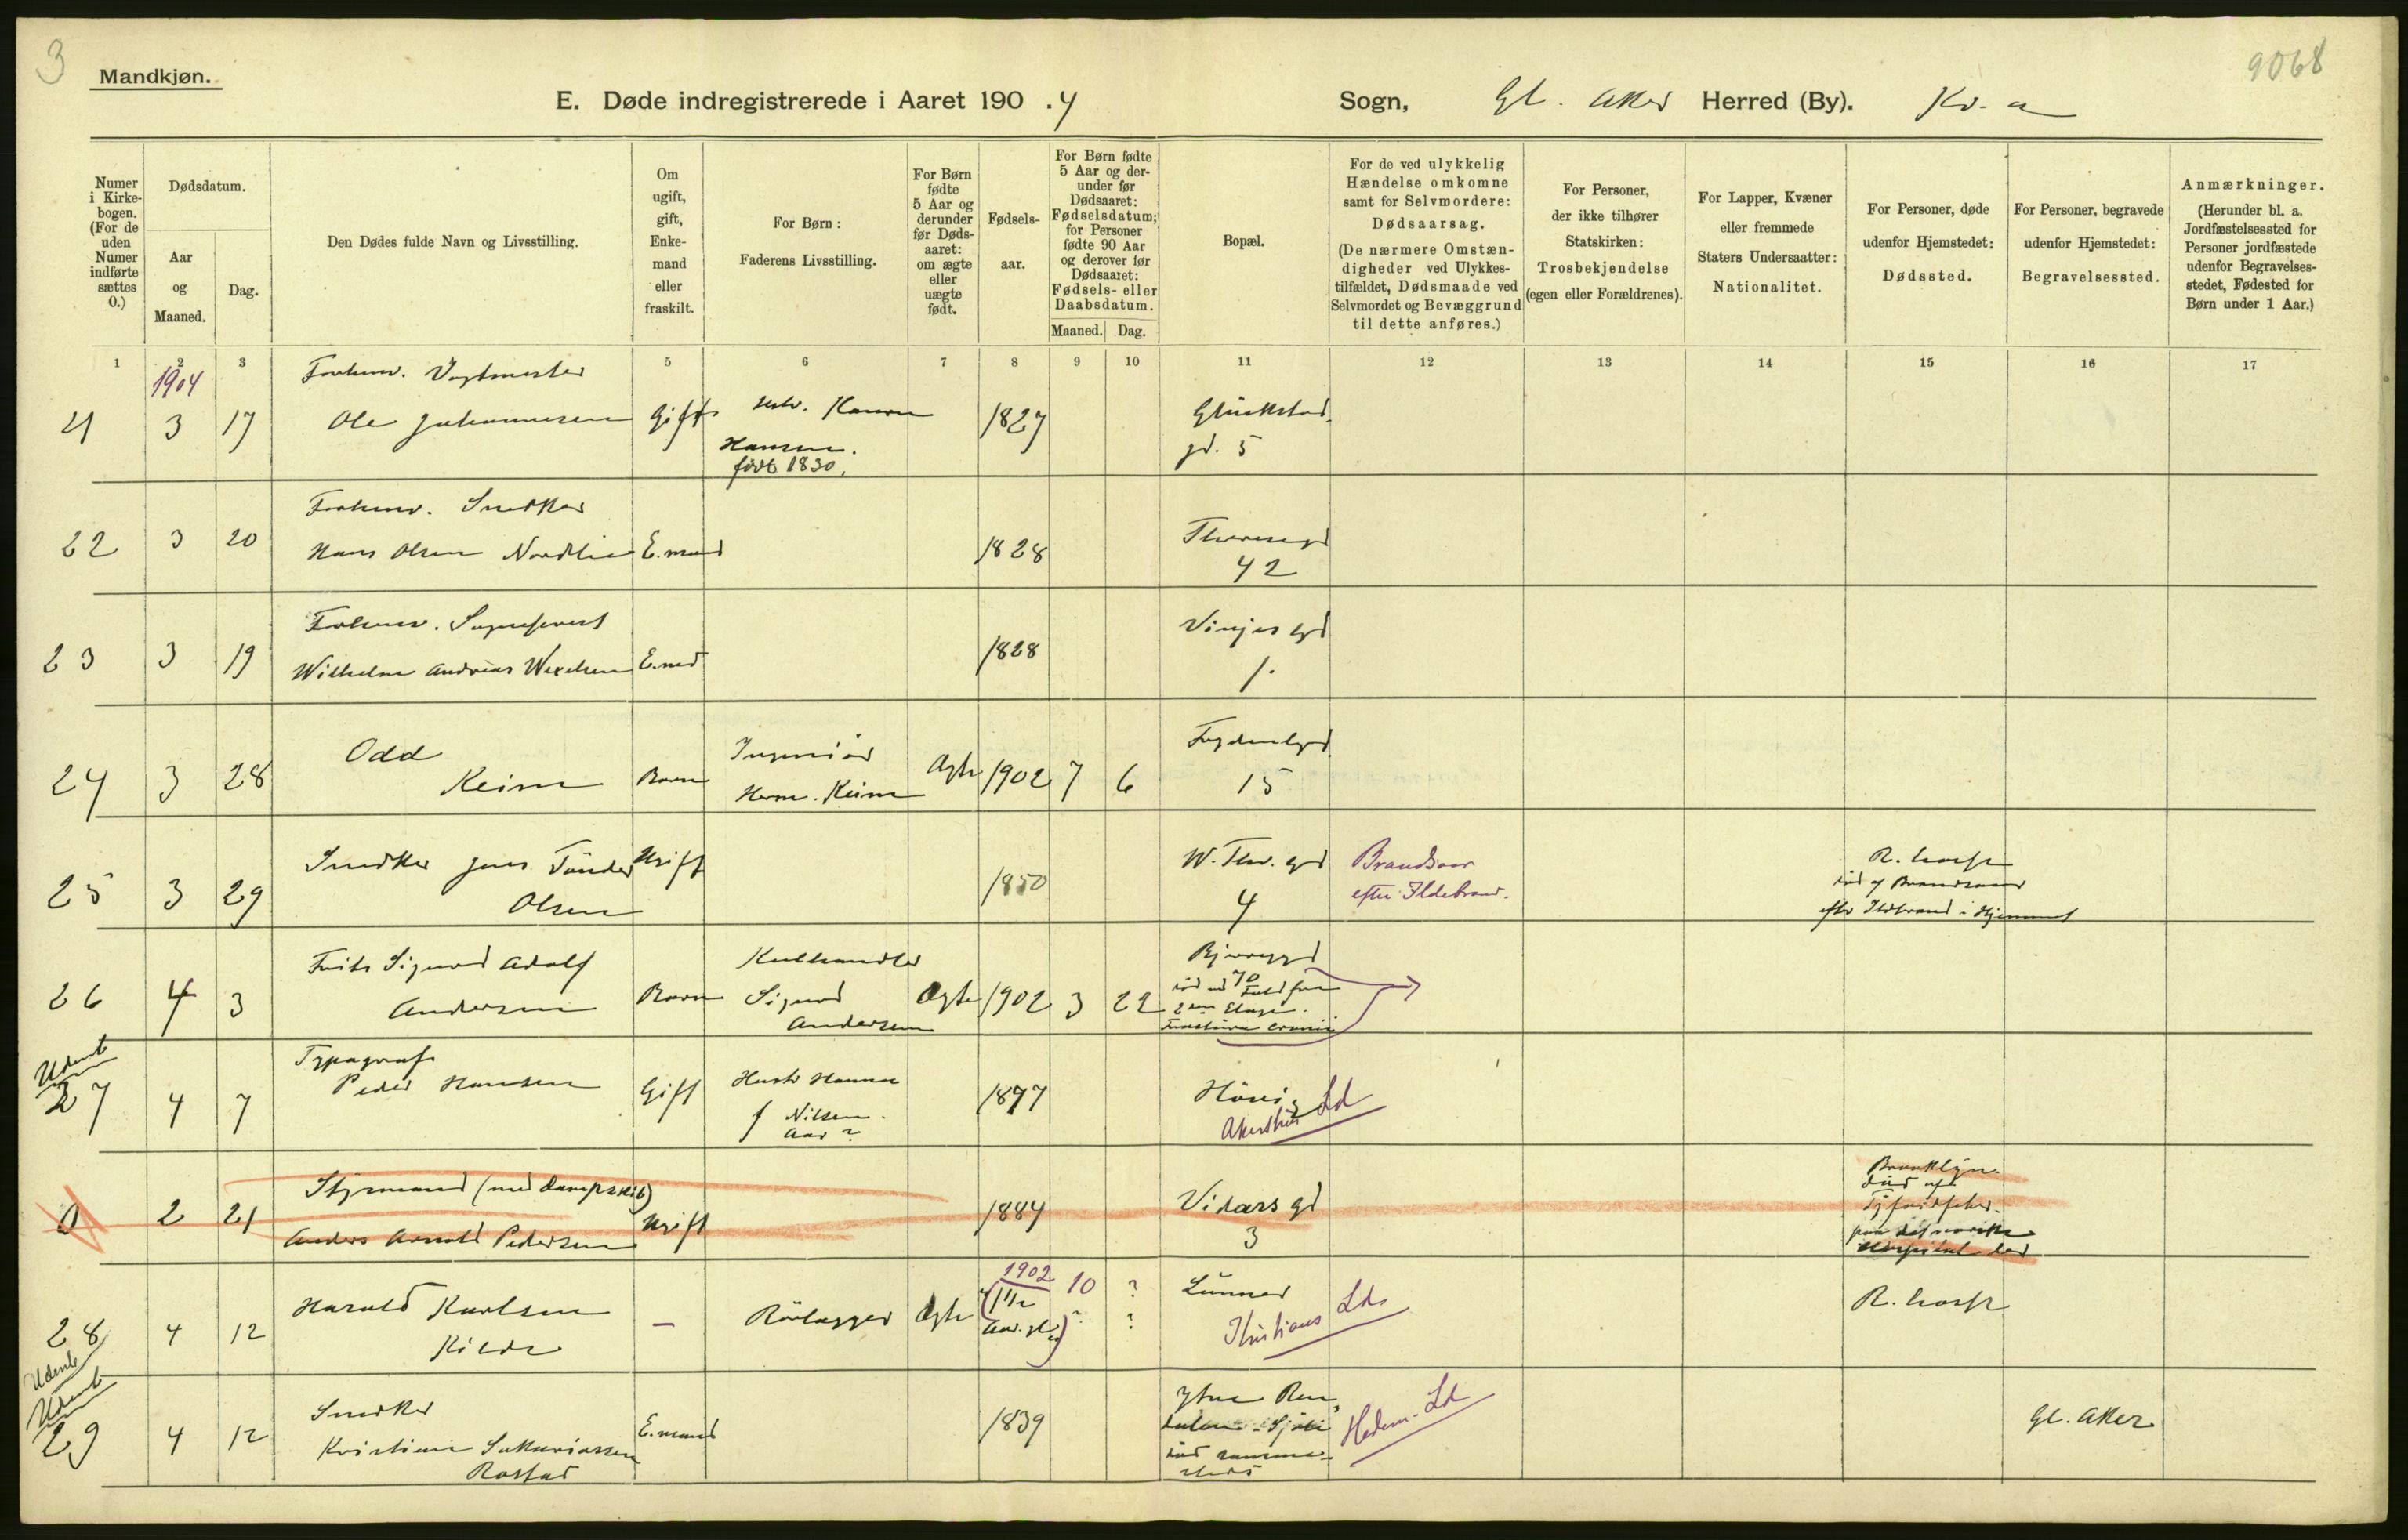 3
9068
Mandkjøn.
E. Døde indregistrerede i Aaret 190 .4 Sogn, Gl. Aker Herred (By). Kr. a
Numer i Kirkebogen. (For de uden Numer indførte sættes 0.)
Dødsdatum.
Aar og Maaned.
Dag.
Den Dødes fulde Navn og Livsstilling.
Om ugift, gift, Enkemand eller fraskilt.
For Børn: Faderens Livsstilling.
For Børn fødte 5 Aar og derunder før Dødsaaret: om ægte eller uægte født.
Fødselsaar.
For Børn fødte 5 Aar og derunder før Dødsaaret: Fødselsdatum; for Personer fødte 90 Aar og derover før Dødsaaret: Fødsels- eller Daabsdatum.
Maaned. Dag.
Bopæl.
For de ved ulykkelig Hændelse omkomne samt for Selvmordere: Dødsaarsag. (De nærmere Omstændigheder ved Ulykkestilfældet, Dødsmaade ved Selvmordet og Bevæggrund til dette anføres.)
For Personer, der ikke tilhører Statskirken: Trosbekjendelse (egen eller Forældrenes).
For Lapper, Kvæner eller fremmede Staters Undersaatter: Nationalitet.
For Personer, døde udenfor Hjemstedet: Dødssted.
For Personer, begravede udenfor Hjemstedet: Begravelsessted.
Anmærkninger. (Herunder bl. a. Jordfæstelsessted for Personer jordfæstede udenfor Begravelsesstedet, Fødested for Børn under 1 Aar.)
1 2 3 5 6 7 8 9 10 11 12 13 14 15 16 17
1904
Forhenv. Vogtmester
21 3 17 Ole Johannesen Gift Hansen. født 1830. 1827 Glückstad gd. 5
Forhenv. Snedker
22 3 20 Hans Olsen Nordlie E.mand 1828 Theresegd 42
Forhenv. Sogneprest
23 3 19 Wilhelm Andreas Wexelsen E.md 1828 Vinjes gd 1.
24 3 28 Odd Keim Barn Ingeniør Herm. Keim Ægte 1902 7 6 15
25 3 29 Snedker Jens Tønder Olsen Ugift 1850 W. Thr. gd 4 Brandsaar efter Ildebrand. R. hosp. død af Brandsaar efter Ildebrand i Hjemmet
26 4 3 Frits Sigurd Adolf Andersen Barn Kulhandler Sigurd Andersen Ægte 1902 3 22 Bjerregd 70 død ved Fald fra 2den Etage. Fractura cranii
Udenb
27 4 7 Typograf Peder Hansen Gift Hustr Hanna f Nilsen Aar ? 1877 Akershus Ld
0 2 21 Styrmand (med Dampskib) Anders Arnold Pedersen Ugift 1884 Vidars gd 3 Brooklyn. død af Tyfoidfeber. paa det norske Hospital der
28 4 12 Harald Karlsen Kilde — Rørlægger Ægte 1902 (1½ Aar. gl.) 10 ? ? ? Lunner Kristians Ld. R. hosp.
Udenb
Udenb
29 4 12 Snedker Kristian Sakariassen Rostad E.mand 1839 Ytre Rendalen død samme steds Hedem. Ld Gl. Aker